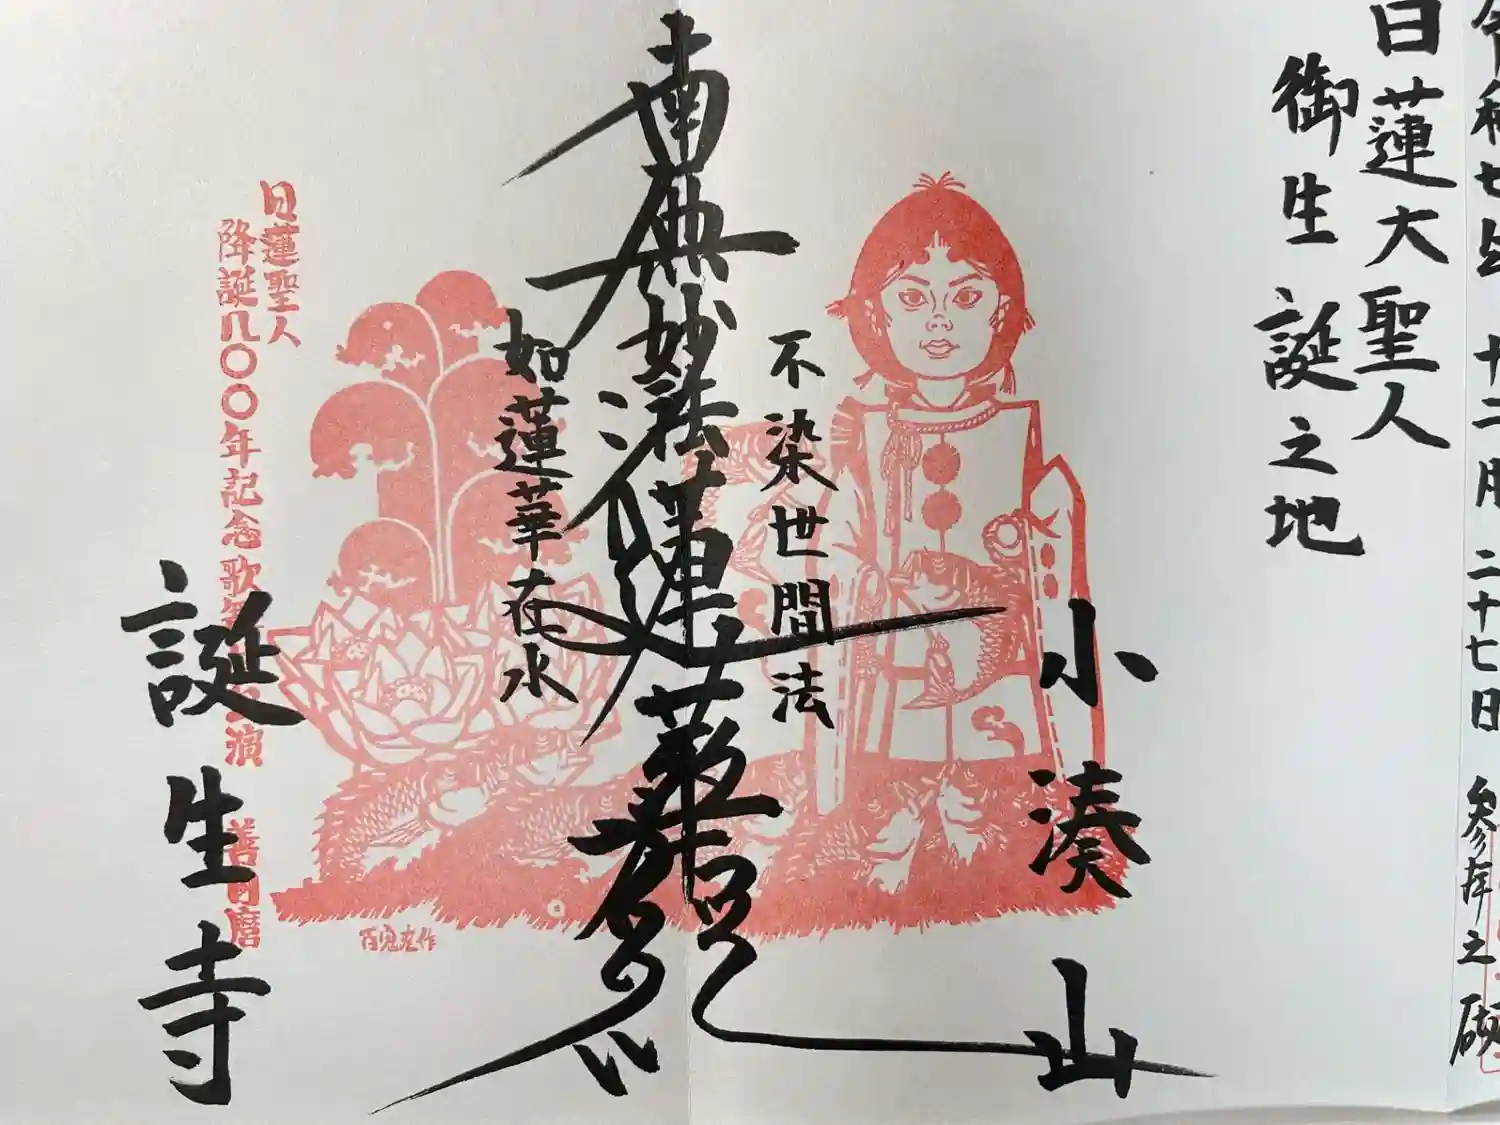 令和七年 十二月 二十七日 参拝之砌
日蓮大聖人
御生誕之地
小湊山
不染世間法
南無妙法蓮華經
如蓮華在水
日蓮聖人
降誕八〇〇年記念歌舞 演 善日麿
誕生寺
百鬼丸作